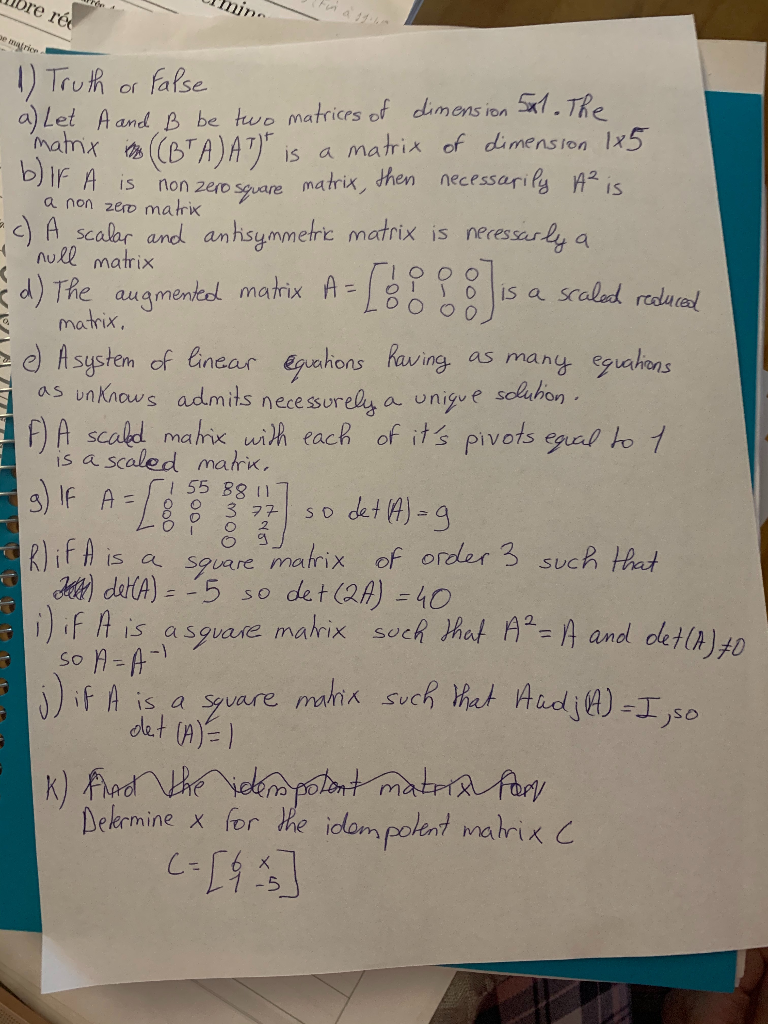 ermin
1) Truth or False
a) Let A and B be two matrices of dimension 5x1. The
matrix ((BᵀA)Aᵀ)ᵀ is a matrix of dimension 1x5
b) IF A is non zero square matrix, then necessarily A² is
a non zero matrix
c) A scalar and antisymmetric matrix is necessarly a
null matrix
d) The augmented matrix A = [1 0 0 0
0 1 1 0
0 0 0 0] is a scaled reduced
matrix.
e) A system of linear equations having as many equations
as unknows admits necessurely a unique solution.
F) A scaled matrix with each of it's pivots equal to 1
is a scaled matrix.
g) IF A = [1 55 88 11
0 0 3 77
0 0 0 2
0 1 0 9] so det(A) = 9
h) if A is a square matrix of order 3 such that
det(A) = -5 so det(2A) = 40
i) if A is a square matrix such that A² = A and det(A) ≠0
so A = A⁻¹
j) if A is a square matrix such that A adj(A) = I, so
det (A) = 1
K) Find the idempotent matrix for
Determine x for the idempotent matrix C
C = [6 x
1 -5]